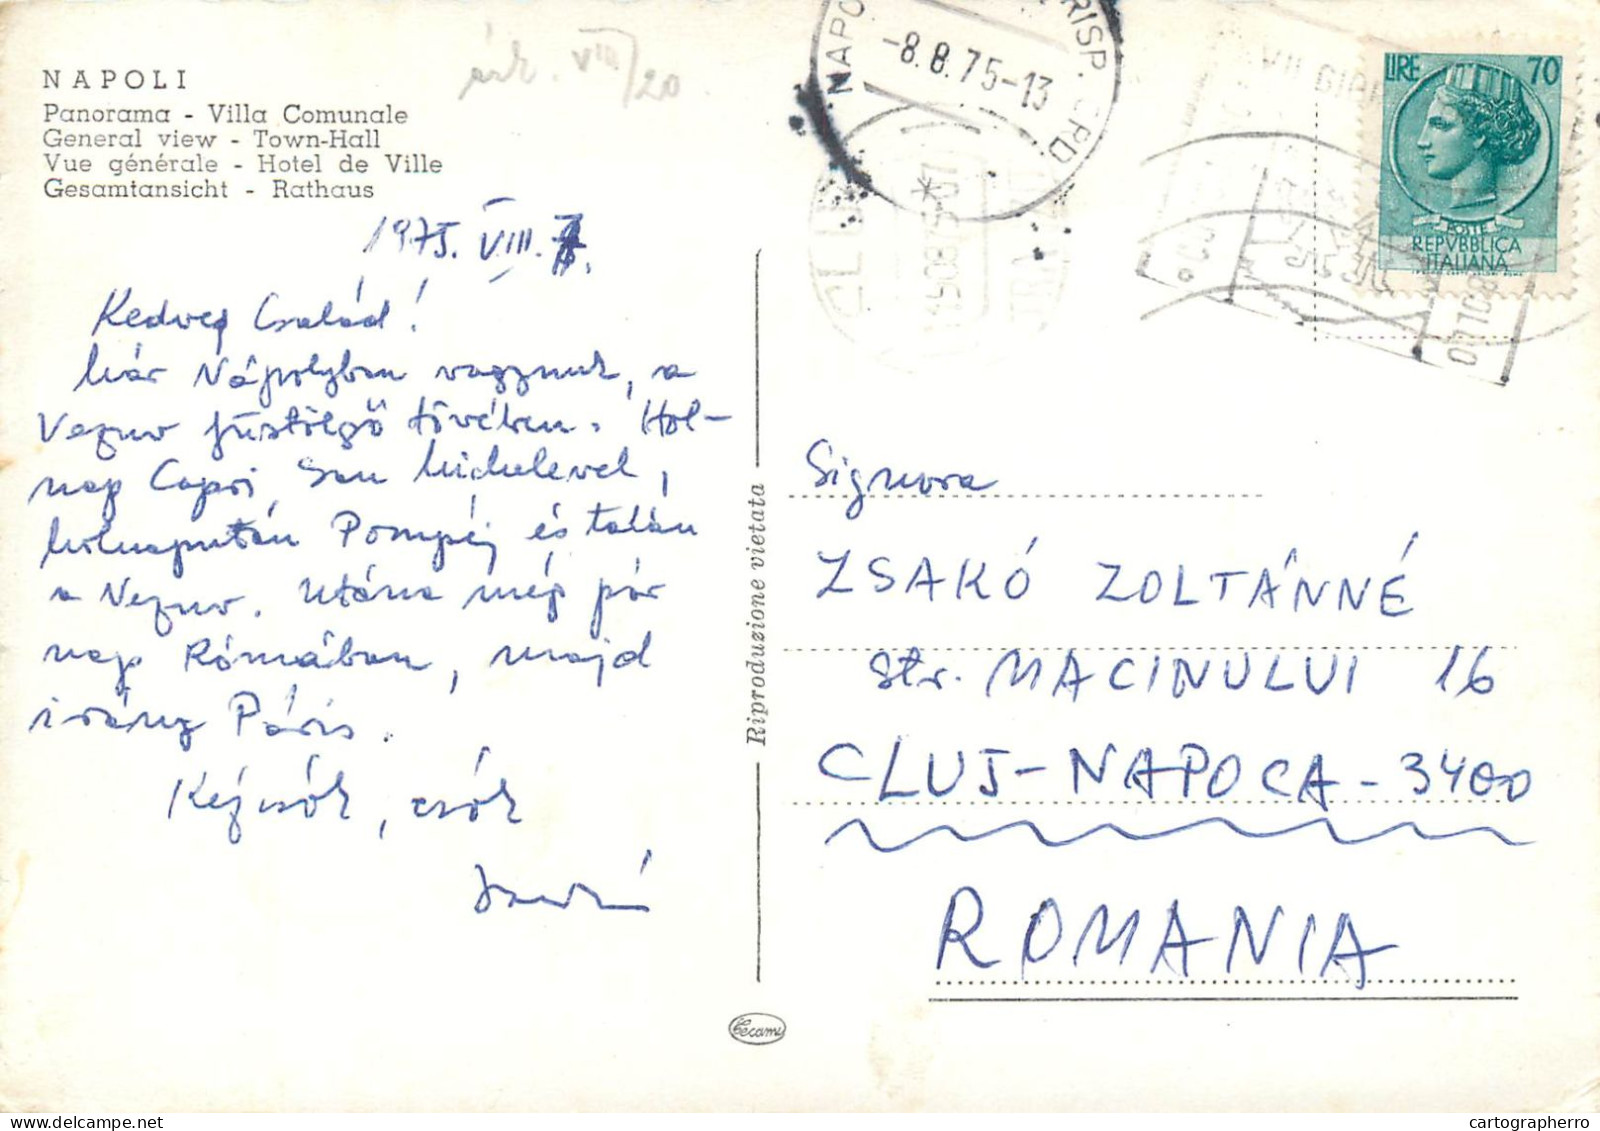 NAPOLI
Panorama - Villa Comunale
General view - Town-Hall
Vue générale - Hotel de Ville
Gesamtansicht - Rathaus
érk. VIII/20
1975. VIII. 7.
Kedves Család!
Már Nápolyban vagyunk, a
Vezuv füstölgő tövében. Hol-
nap Capri, San Michelevel,
holnapután Pompéj és talán
a Vezuv. Utána még pár
nap Rómában, majd
irány Páris.
Kézcsók, csók
Riproduzione vietata
Cecami
-8.8.75-13
LIRE 70
POSTE
REPVBBLICA
ITALIANA
Signora
ZSAKÓ ZOLTÁNNÉ
str. MACINULUI 16
CLUJ-NAPOCA-3400
ROMANIA
cartographerro